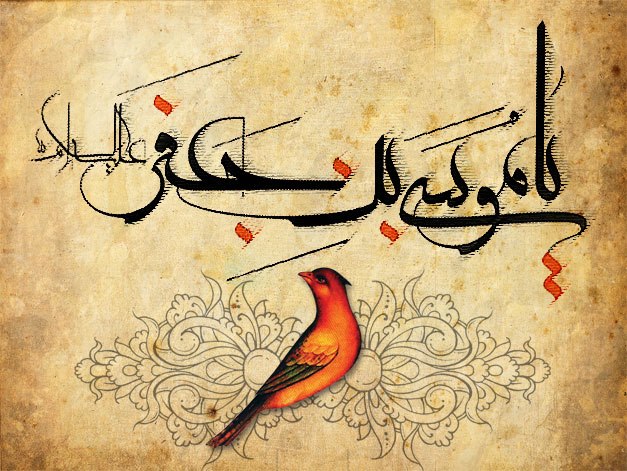 یا موسی بن جعفر علیه السلام